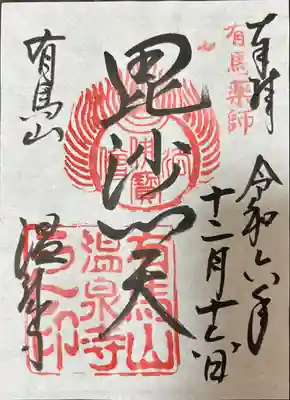 奉拝
有馬
薬師
令和六年
十二月
毘沙門天
有馬山
温泉寺
有馬山
温泉寺
之印